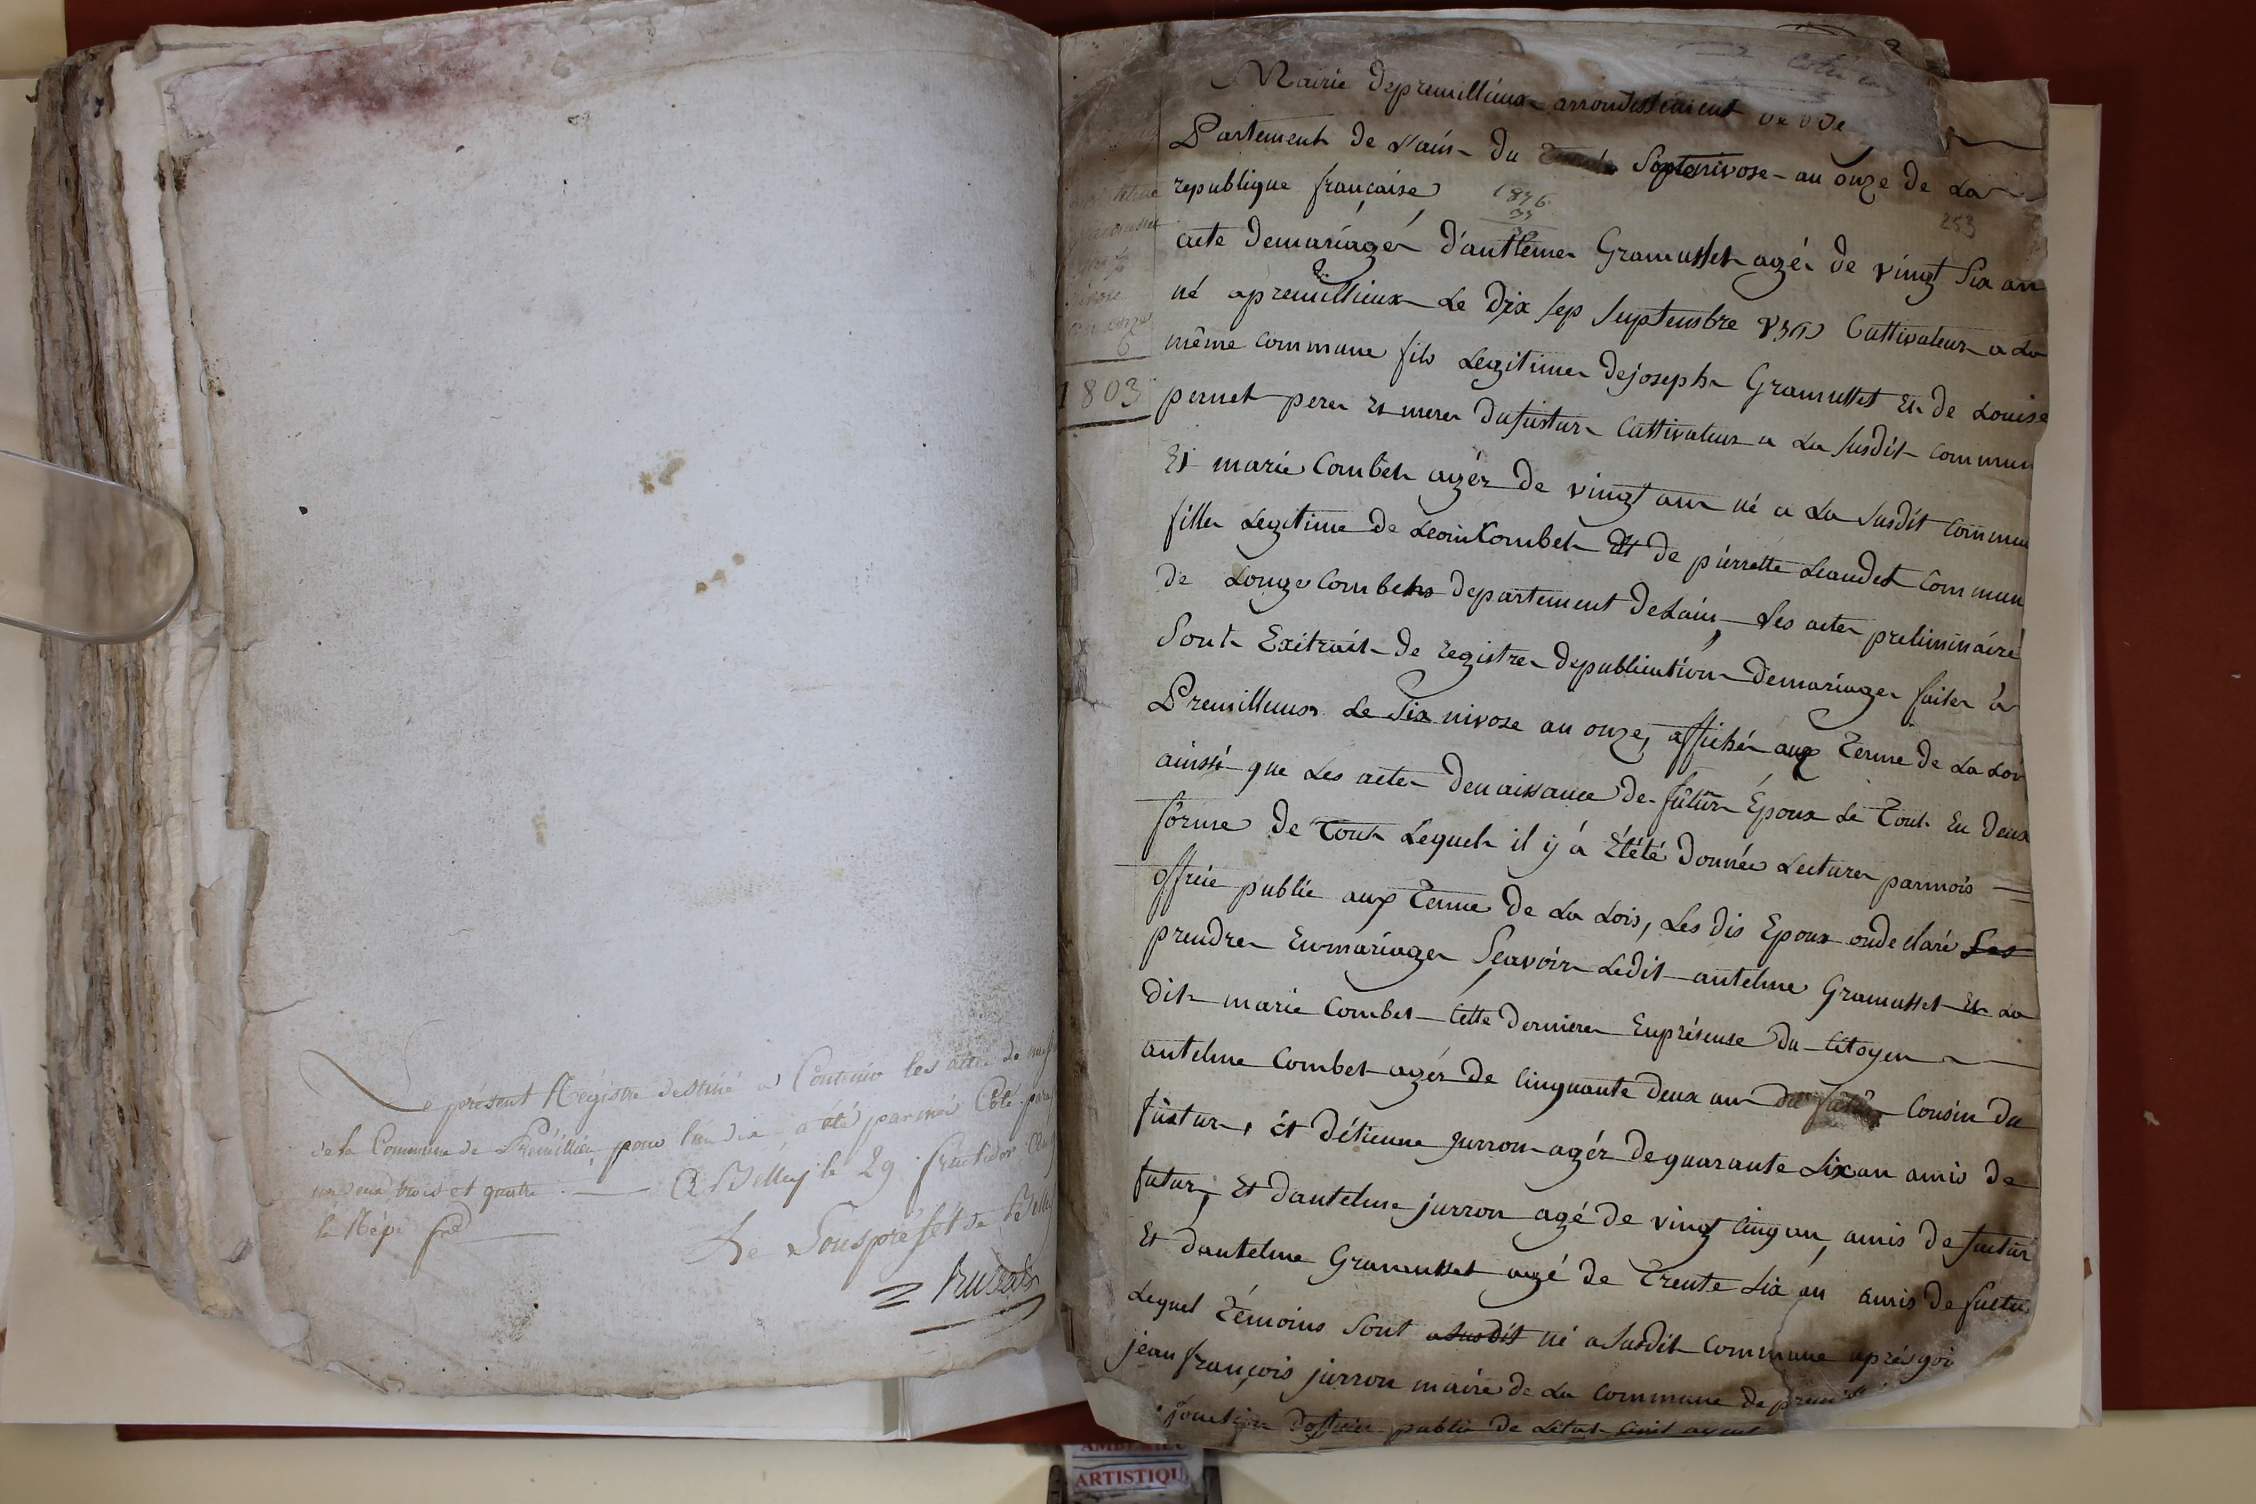 Le présent Régistre destiné a Contenir les actes de
de la Commune de Premillieu, pour l'an dix a été par moi Côté
un deux trois et quatre. — A Belley le 29 fructidor
la Rép. frse
Le Souspréfet de Belley
Mairie depremillieux arrondissement
Partement de L'ain du Septe nivose an onze de La
republique française
1876
253
acte demariagé d'antleme Gramusset agé de vingt Six an
né apremillieux Le Dix sep Septembre Cultivateur a La
même commune fils Legitime dejoseph Gramusset Et de Louise
pernet pere Et mere dufustur Cultivateur a La susdit commun
Et marie Combet agér de vingt ans né a La susdit commun
fille Legitime de Leonie Combet Et de pierrette Leaudet Commun
de Longe Combets departement deLain, Les acte preliminaire
Sont Exitrait de registre depublication demariage faite à
Premillieux Le Six nivose an onze, affiché aux terme de La Loi
ainssi que Les acte denaissance de futur Époux Le Tout En deux
forme de tout Lequel il y á Etété donnée Lecture parmois
offcie publie aux terme de La Lois, Les dis Epoux ondeclaré Les
prendre Enmariage Seavoir Ledit antelme Gramusset Et La
dit marie Combet Cette derniere Enprésense Du Citoyen
antelme Combet agér de Cinquante deux an du futur Cousin du
fustur, Et détienne Jurron agér dequarante Sixan amis de
futur, Et dantelme jurron agé de vingt Cinq an, amis de fustur
Et dantelme Gramusset agé de trente Six an amis de futu
Lequel témoins Sont asusdit né a susdit Commune aprés qoi
jean françois jurron maire de La Commune de
fonction dofficier public de Létat Civil ayent
an onze
6
1803
AMBERIEU
ARTISTIQU